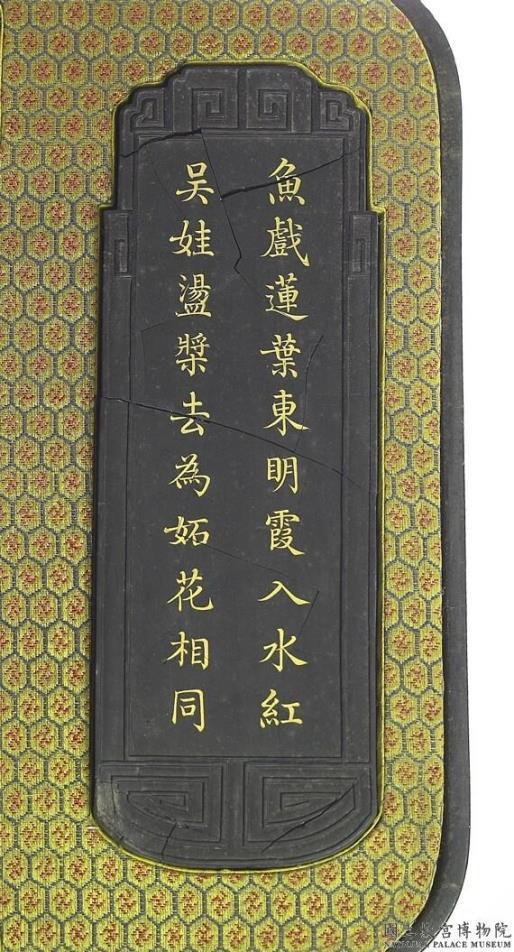 魚戲蓮葉東明霞入水紅
吴娃盪槳去為妬花相同
國立故宮博物院
NATIONAL PALACE MUSEUM